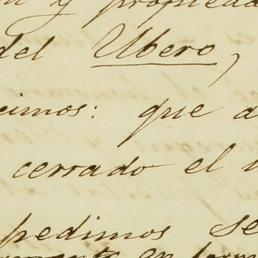 y propiedad
del Ubero,
cimos: que a
cerrado el
pedimos se